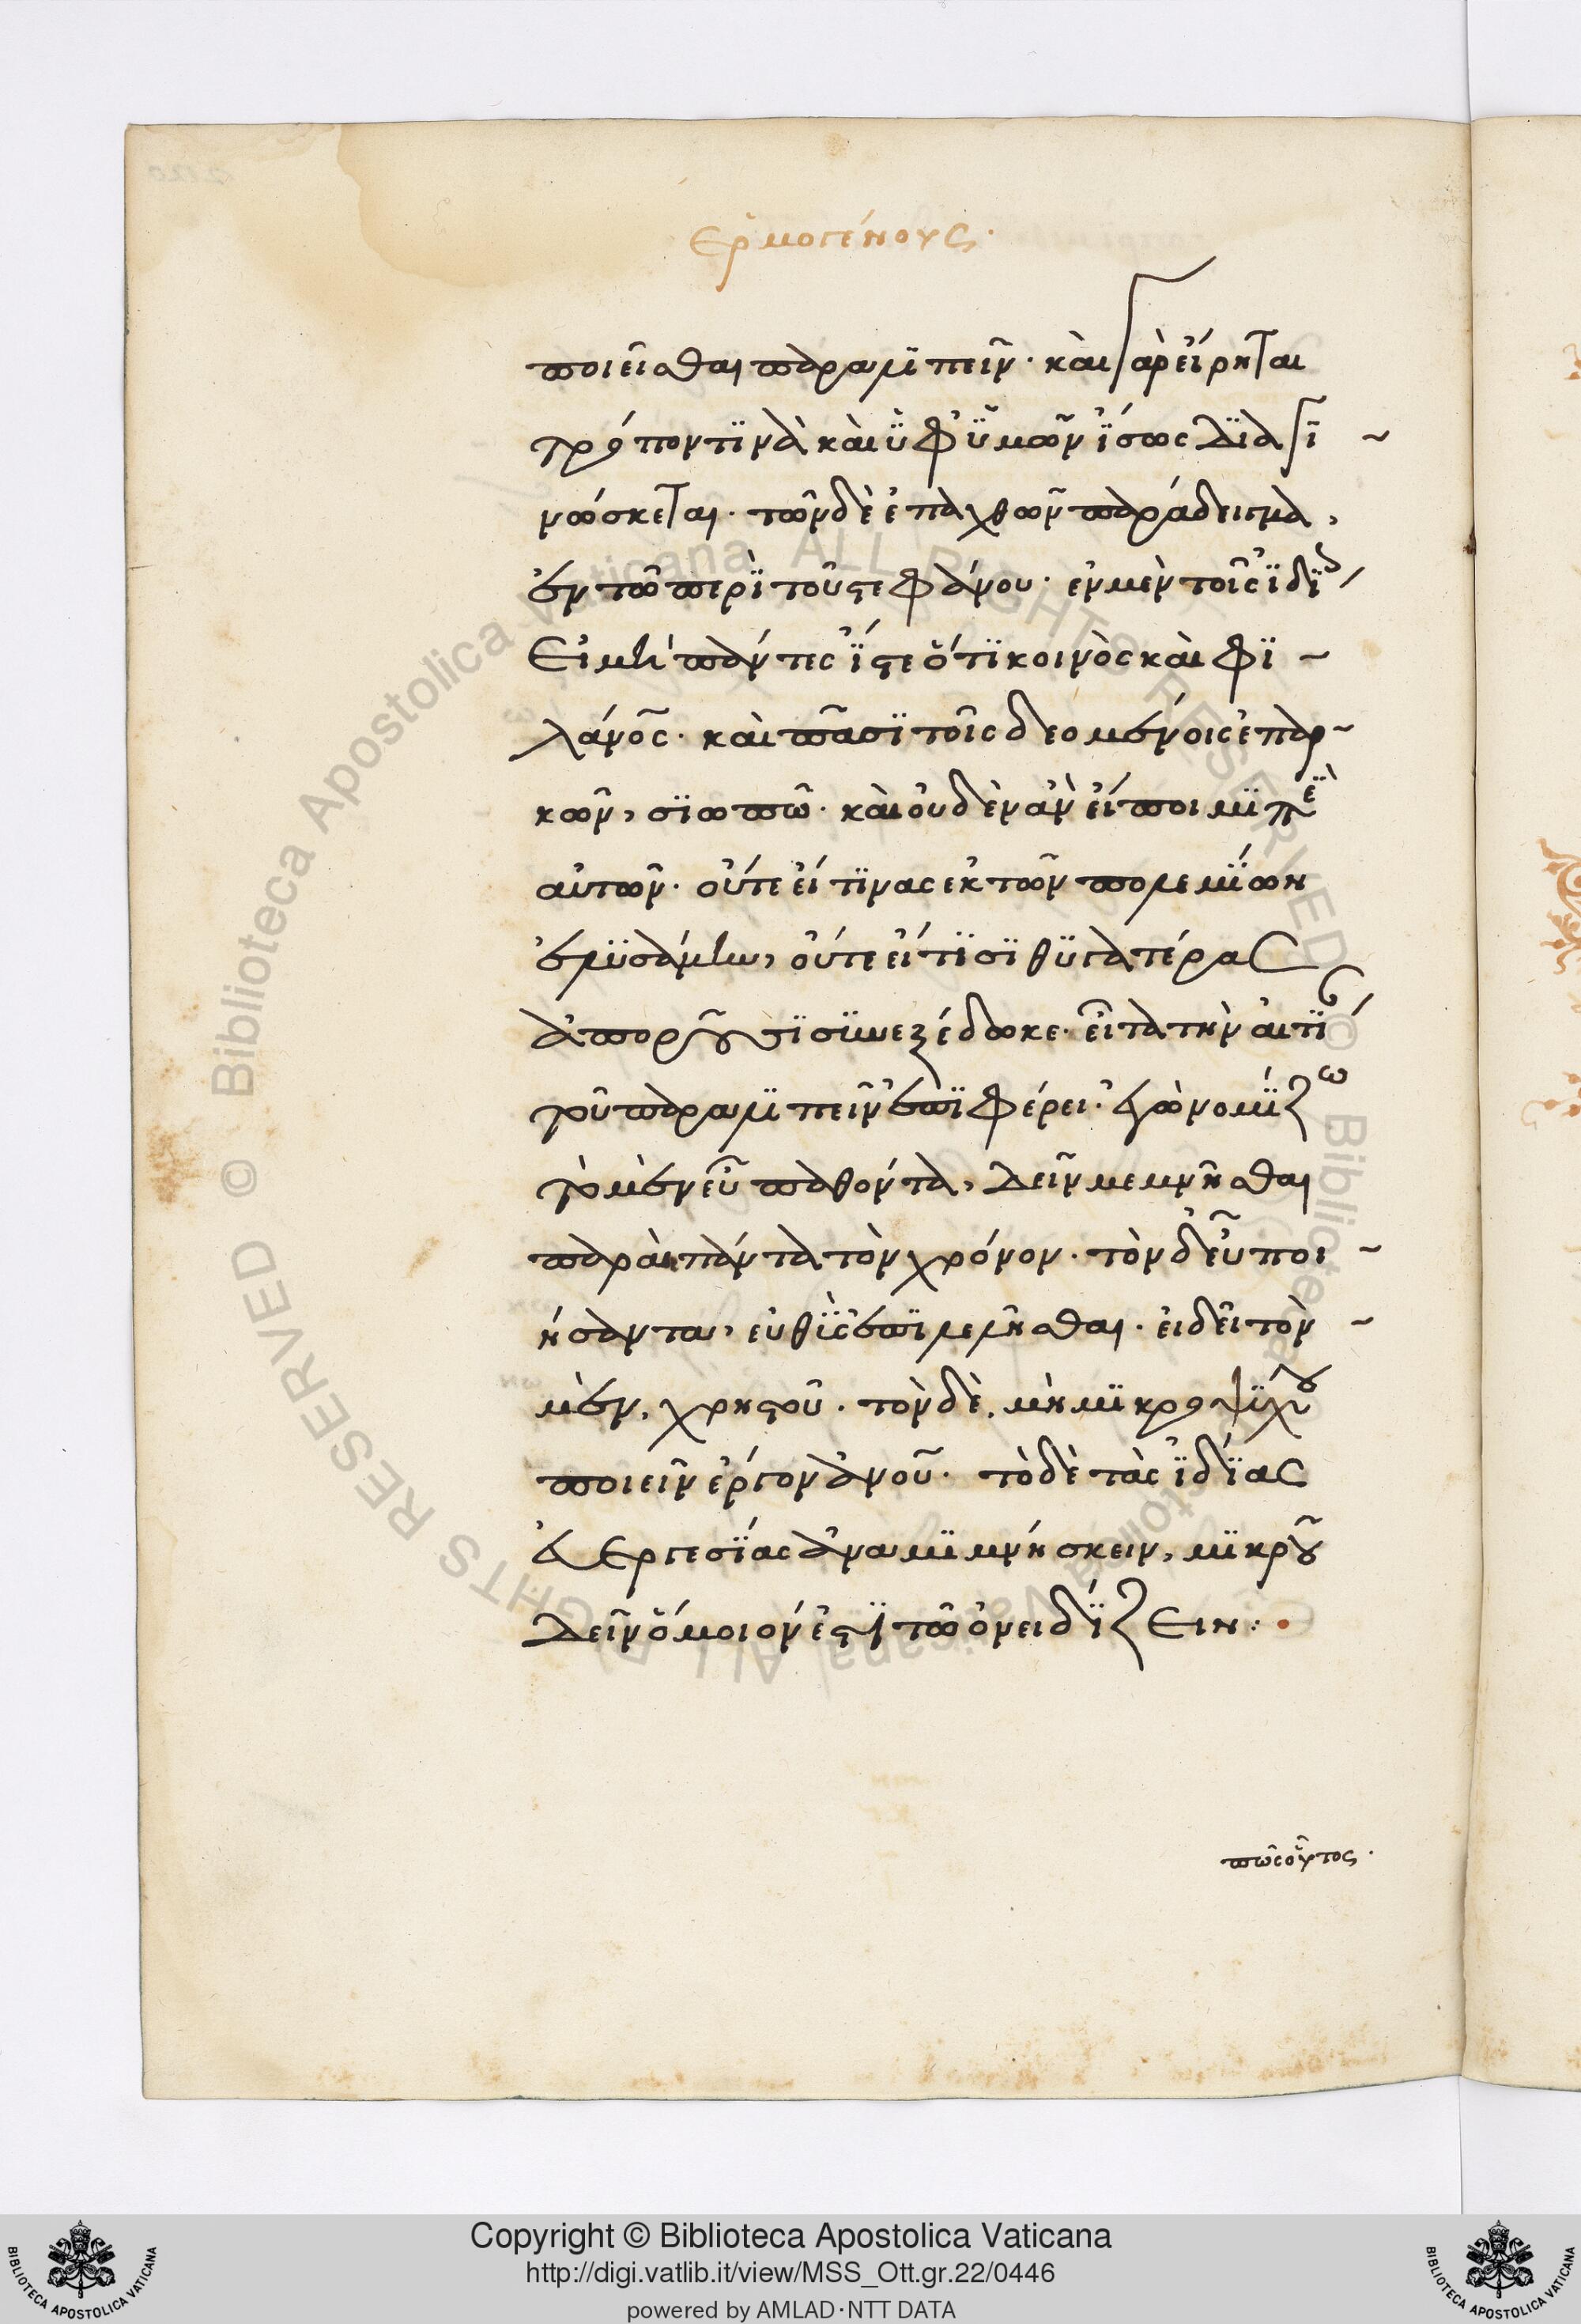 ἑρμογένους.
ποιεῖσθαι παραλϊπεῖν. καὶ γὰρ εἴρηται
τρόπον τϊνὰ καὶ ὑφ' ὑμῶν ἴσως διαγϊ ~
νώσκεται. τῶν δὲ ἐπαχθῶν παράδειγμα,
ἐν τῶ περὶ τοῦ στεφάνου. ἐν μὲν τοῖς ἰδί
Εἰ μὴ πάντες ἴστε ὅτι κοινὸς καὶ φι ~
λάνος. καὶ πᾶσϊ τοῖς δεομένοις ἐπαρ ~
κῶν, σϊωπῶ. καὶ οὐδὲν ἂν εἴποιμϊ περὶ
αὐτῶν. οὔτε εἴ τϊνας ἐκ τῶν πολεμίων
ἐλυσάμην, οὔτε εἴ τϊσϊ θϋγατέρας
ἀποροῦσϊ σϋνεξέδωκε. εἶτα τὴν αἰτί
τοῦ παραλϊπεῖν ἐπϊφέρει. ἐγὼ νομίζω
τὸ μὲν εὖ παθόντα, δεῖν μεμνῆσθαι
παρὰ πάντα τὸν χρόνον. τὸν δ' εὖ ποι ~
ήσαντα, εὐθὺς ἐπϊλελῆσθαι. εἰ δεῖ τὸν ~
μὲν, χρηστοῦ. τὸν δὲ, μὴ μϊκροψύχου
ποιεῖν ἔργον ἀνοῦ. τὸ δὲ τὰς ἰδίας
εὐεργεσίας ἀναμϊμνήσκειν, μϊκροῦ
δεῖν ὅμοιόν ἐστϊ τῶ ὀνειδίζειν:·
πῶς οὗτος.
Copyright © Biblioteca Apostolica Vaticana
http://digi.vatlib.it/view/MSS_Ott.gr.22/0446
powered by AMLAD·NTT DATA